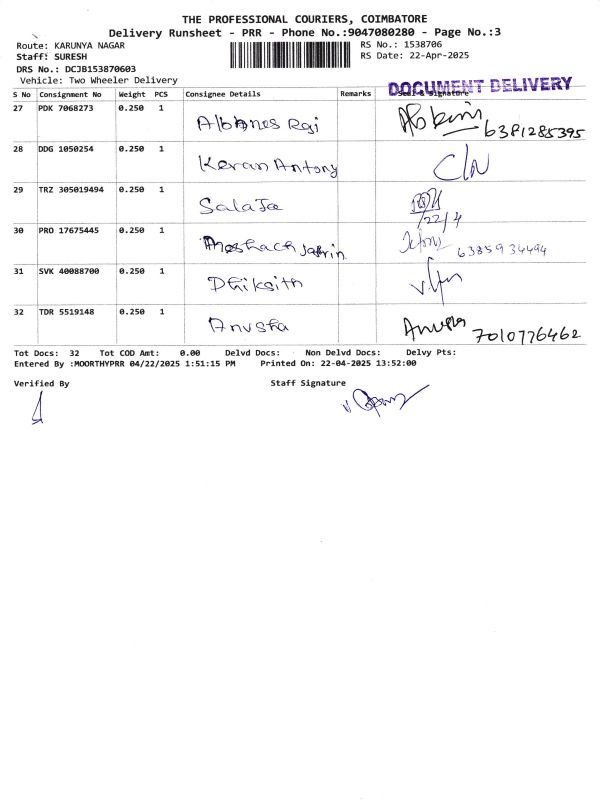 THE PROFESSIONAL COURIERS, COIMBATORE
Delivery Runsheet - PRR - Phone No.:9047080280 - Page No.:3
Route: KARUNYA NAGAR RS No.: 1538706
Staff: SURESH RS Date: 22-Apr-2025
DRS No.: DCJB153870603
Vehicle: Two Wheeler Delivery
DOCUMENT DELIVERY
S No Consignment No Weight PCS Consignee Details Remarks Seal & Signature
27 PDK 7068273 0.250 1 6381285395
28 DDG 1050254 0.250 1 Keran Antony
29 TRZ 305019494 0.250 1 Salaja 22/4
30 PRO 17675445 0.250 1 6385934494
31 SVK 40088700 0.250 1 Dhiksith
32 TDR 5519148 0.250 1 Anusha Anusha 7010776462
Tot Docs: 32 Tot COD Amt: 0.00 Delvd Docs: Non Delvd Docs: Delvy Pts:
Entered By :MOORTHYPRR 04/22/2025 1:51:15 PM Printed On: 22-04-2025 13:52:00
Verified By Staff Signature